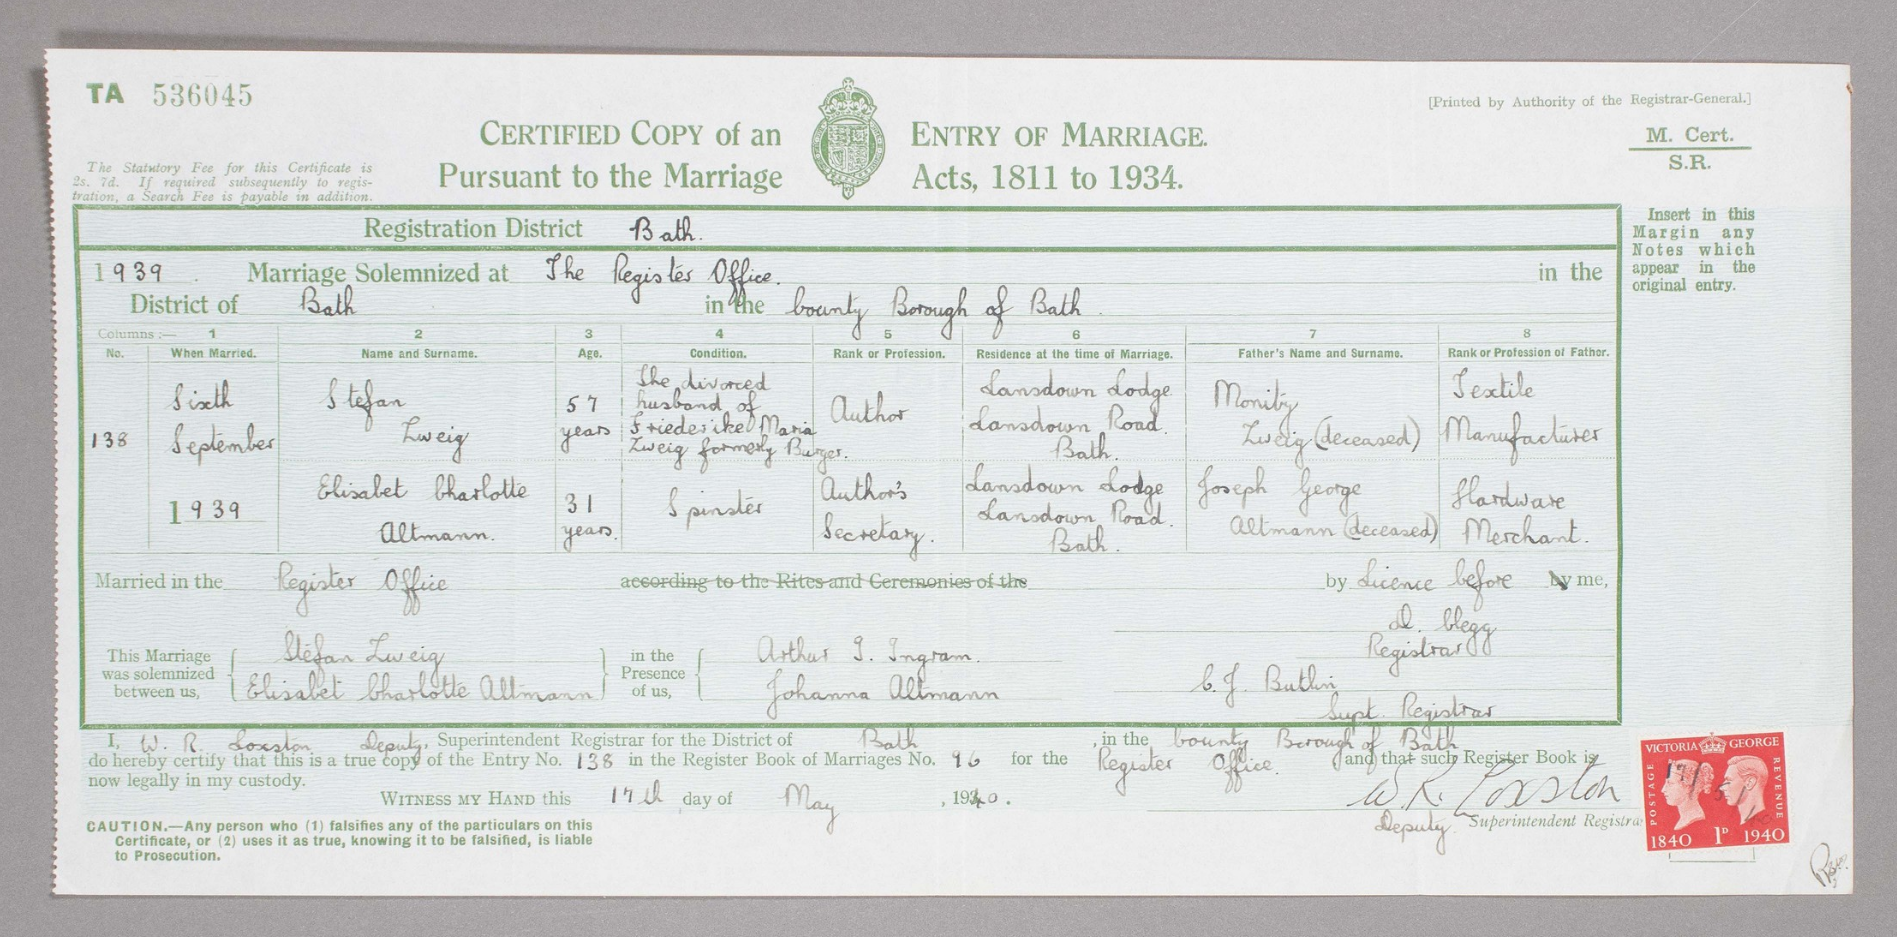 TA 536045
[Printed by Authority of the Registrar-General.]
CERTIFIED COPY of an ENTRY OF MARRIAGE.
Pursuant to the Marriage Acts, 1811 to 1934.
M. Cert.
S.R.
The Statutory Fee for this Certificate is
2s. 7d. If required subsequently to regis-
tration, a Search Fee is payable in addition.
Registration District Bath.
Insert in this
Margin any
Notes which
appear in the
original entry.
1939. Marriage Solemnized at The Register Office. in the
District of Bath in the County Borough of Bath.
Columns :— 1 2 3 4 5 6 7 8
No. When Married. Name and Surname. Age. Condition. Rank or Profession. Residence at the time of Marriage. Father's Name and Surname. Rank or Profession of Father.
138
Sixth
September
1939
Stefan
Zweig
57
years
The divorced
husband of
Friederike Maria
Zweig formerly Burger.
Author
Lansdown Lodge
Lansdown Road.
Bath.
Moritz
Zweig (deceased)
Textile
Manufacturer
Elisabet Charlotte
Altmann.
31
years.
Spinster
Author's
Secretary.
Lansdown Lodge
Lansdown Road.
Bath.
Joseph George
Altmann (deceased)
Hardware
Merchant.
Married in the Register Office according to the Rites and Ceremonies of the by Licence before by me,
D. Clegg
Registrar
This Marriage
was solemnized
between us,
Stefan Zweig
Elisabet Charlotte Altmann
in the
Presence
of us,
Arthur I. Ingram.
Johanna Altmann
C. J. Butlin
Supt. Registrar
I, W. R. Loxston Deputy, Superintendent Registrar for the District of Bath, in the County Borough of Bath
do hereby certify that this is a true copy of the Entry No. 138 in the Register Book of Marriages No. 96 for the Register Office. and that such Register Book is
now legally in my custody.
WITNESS MY HAND this 17th day of May, 1940.
W. R. Loxston
Deputy. Superintendent Registra
CAUTION.—Any person who (1) falsifies any of the particulars on this
Certificate, or (2) uses it as true, knowing it to be falsified, is liable
to Prosecution.
VICTORIA GEORGE
POSTAGE REVENUE
17/5
1840 1D 1940